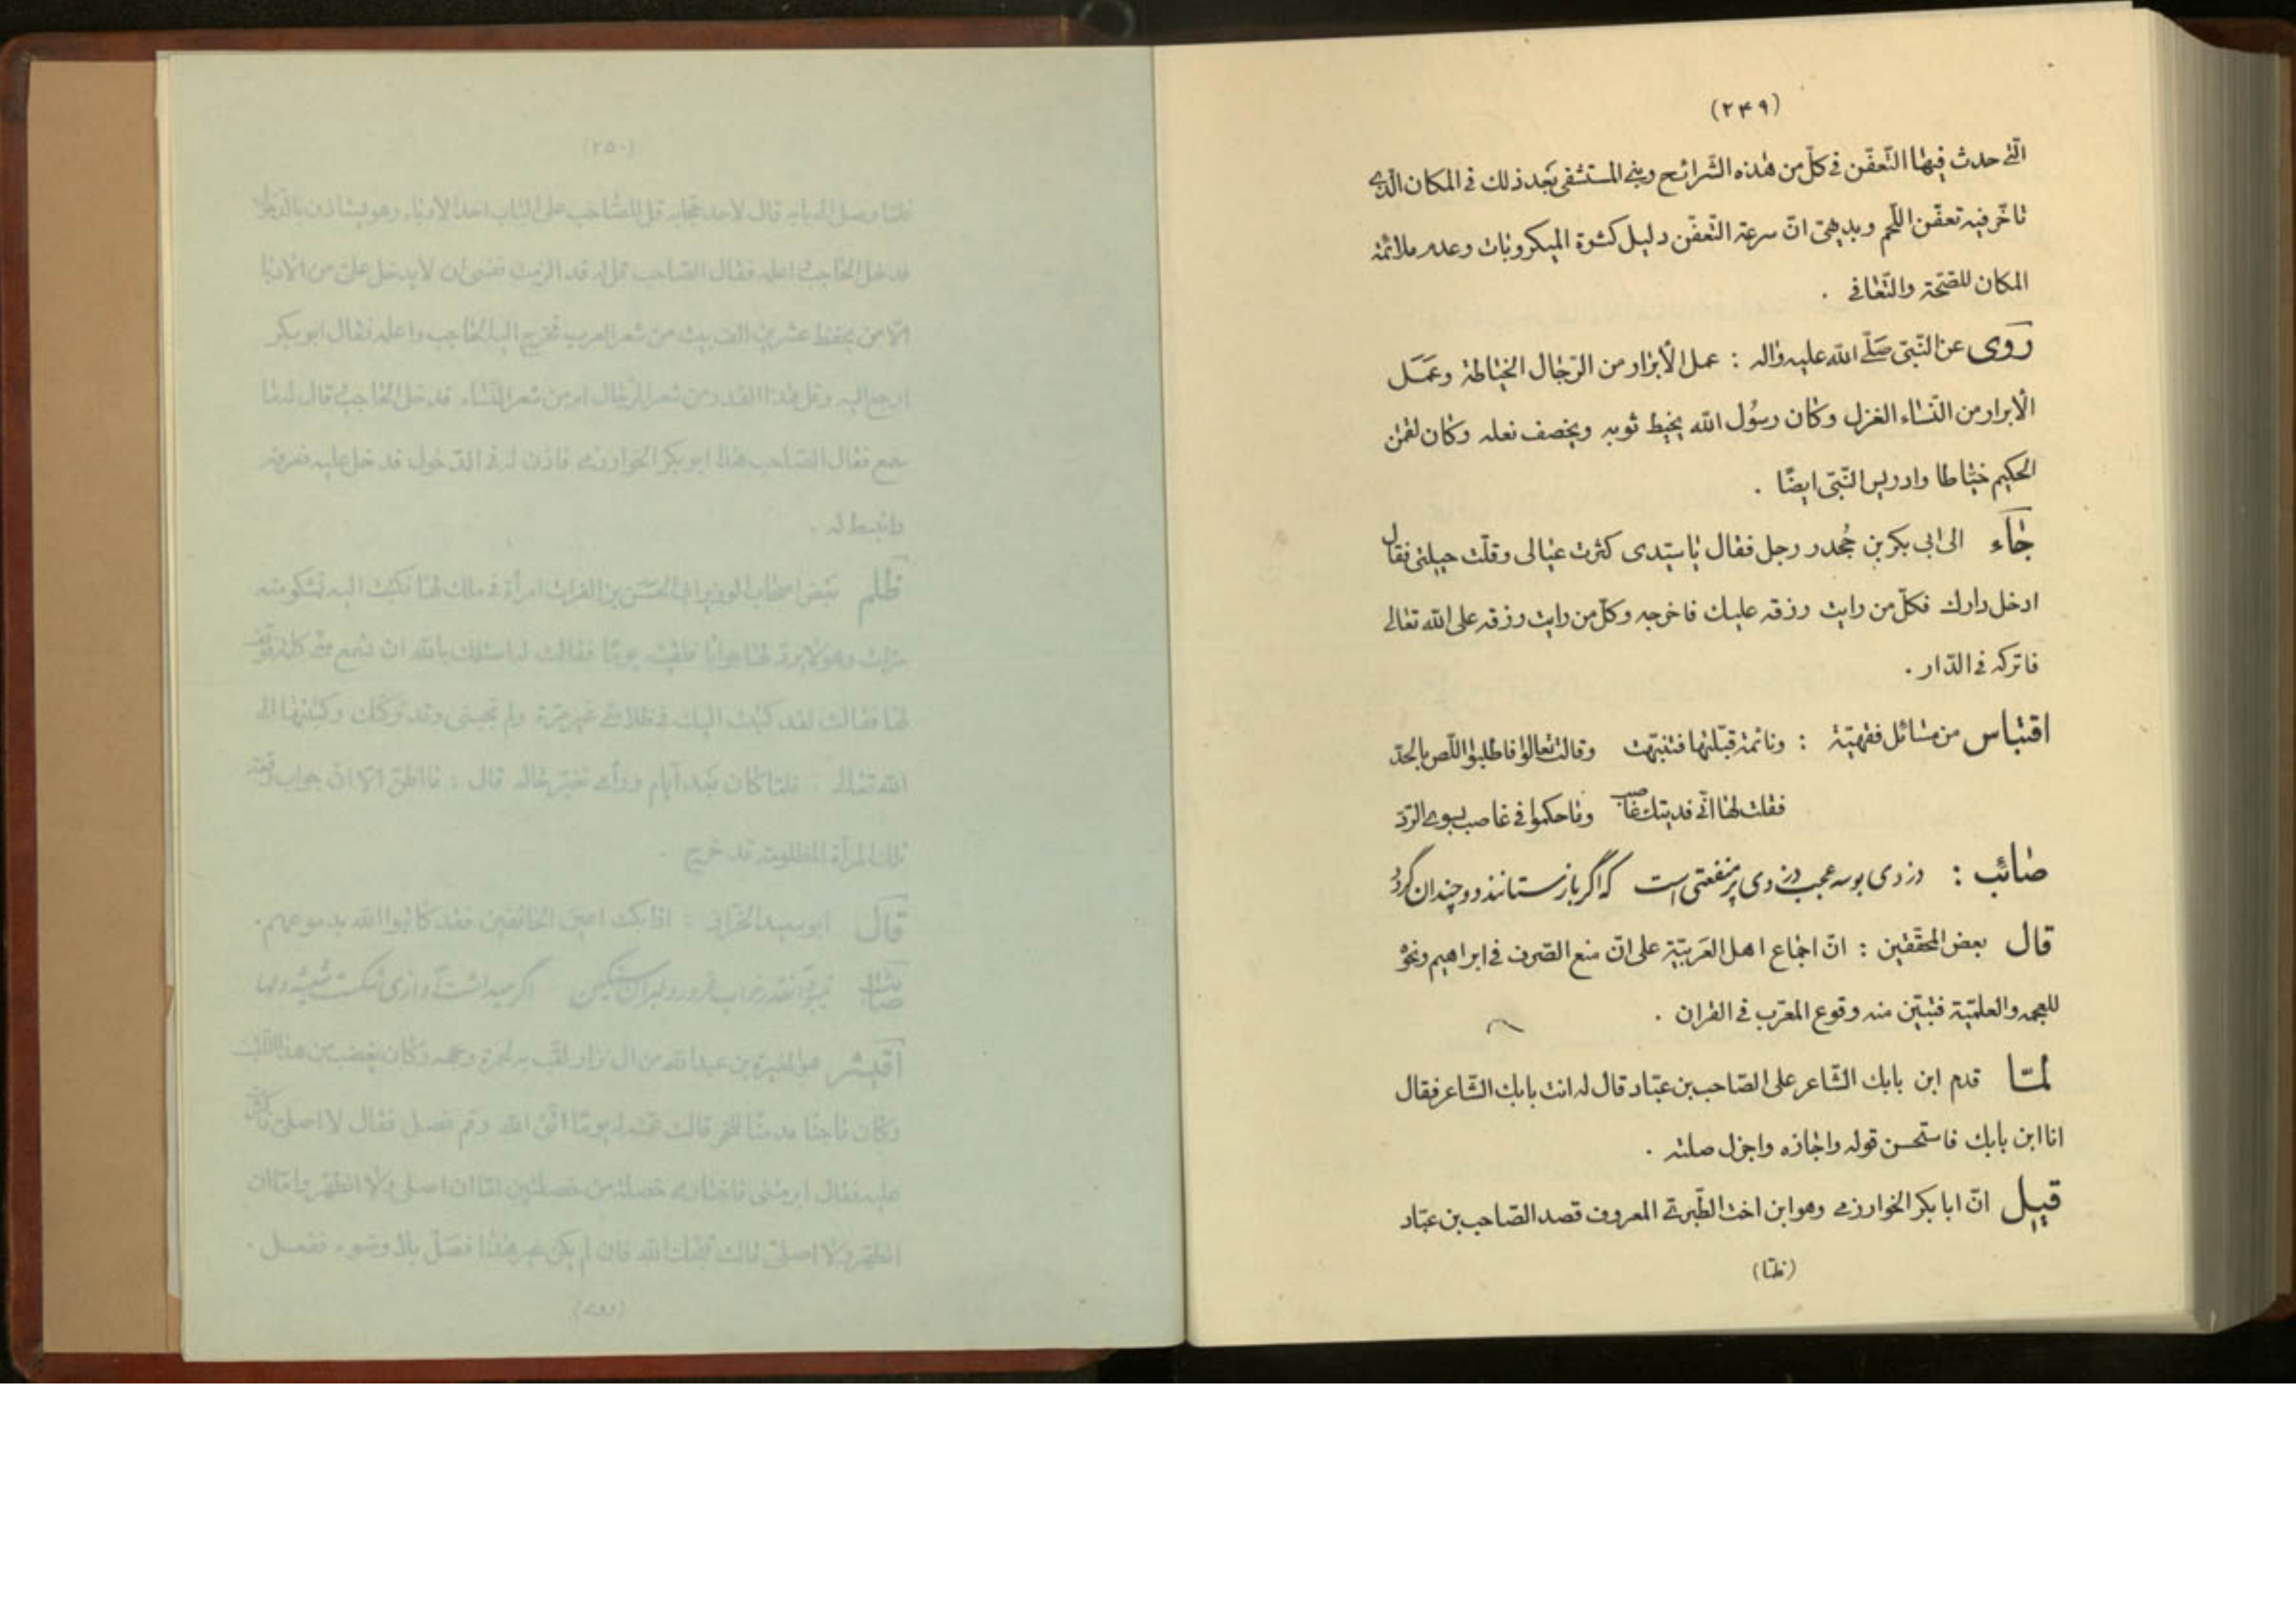 (۲۴۹)
الّتي حدث فيها التّعفّن في كلّ من هذه الشّرائح وبنى المستشفى بعد ذلك في المكان الّذي
تاخّر فيه تعفّن اللّحم وبديهيّ انّ سرعة التّعفّن دليل كثرة الميكروبات وعدم ملائمة
المكان للصّحّة والتّعافي .
روى عن النّبيّ صلّى الله عليه واله : عمل الأبرار من الرّجال الخياطة وعمل
الأبرار من النّساء الغزل وكان رسول الله يخيط ثوبه ويخصف نعله وكان لقمن
الحكيم خيّاطا وادريس النّبيّ ايضًا .
جاء الى ابي بكر بن جُحدر رجل فقال يا سيّدى كثرت عيالى وقلّت حيلتى فقال
ادخل دارك فكلّ من رايت رزقه عليك فاخرجه وكلّ من رايت رزقه على الله تعالى
فاتركه في الدّار .
اقتباس من مسائل فقهيّة : ونائمة قبّلتها فتنبّهت وقالت تعالوا فاطلبوا اللّص بالحدّ
فقلت لها انّي فديتك غاصب وما حكموا في غاصب بسوى الردّ
صائب : دزدى بوسه عجب دزدى پر منفعتى است كه اگر باز ستانند دو چندان گردد
قال بعض المحقّقين : انّ اجماع اهل العربيّة على انّ منع الصّرف في ابراهيم ونحوه
للعجمه والعلميّة فتبيّن منه وقوع المعرّب في القران .
لمّا قدم ابن بابك الشّاعر على الصّاحب بن عبّاد قال له انت بابك الشّاعر فقال
انا ابن بابك فاستحسن قوله واجازه واجزل صلته .
قيل انّ ابا بكر الخوارزمي وهو ابن اخت الطّبريّ المعروف قصد الصّاحب بن عبّاد
(فلمّا)
(۲۵۰)
فلمّا وصل الى بابه قال لاحد حجّابه قل للصّاحب على الباب احد الادباء وهو يستاذن بالدخول
فدخل الحاجب اعلمه فقال الصّاحب قل له قد الزمت نفسى ان لا يدخل علىّ من الادبا
الّا من يحفظ عشرين الف بيت من شعر العرب فخرج اليه الحاجب واعلمه فقال ابو بكر
ارجع اليه وقل هذا القدر من شعر الرّجال ام من شعر النّساء فدخل الحاجب قال له ما
سمع فقال الصّاحب هذا ابو بكر الخوارزمي فاذن له في الدّخول فدخل عليه فعرفه
وانبسط له .
ظلم بعض اصحاب الوزير ابي الحسن بن الفرات امرأة في ملك لها فكتبت اليه تشكو منه
مرّات وهو لا يردّ لها جوابا فلقيته يومًا فقالت له اسئلك بالله ان تسمع منّي كلمة فوقف
لها فقالت لقد كتبت اليك في ظلامتي غير مرّة ولم تجبنى وقد تركتك وكتبتها الى
الله تعالى . فلمّا كان بعد ايّام ورأى تغيّر حاله قال : ما اظنّ الّا انّ جواب رقعة
تلك المرأة المظلومة قد خرج .
قال ابو سعيد الخرّاز : اذا بكت اعين الخائفين فقد كاتبوا الله بدموعهم .
صائب
اقيشر هو المغيرة بن عبد الله لقّب به لحمرة وجهه وكان يغضب من هذا اللّقب
وكان ماجنًا مدمنًا للخمر قالت عمّته له يومًا اتّق الله وقم فصلّ فقال لا اصلّي فاكثرت
عليه فقال ابرمتنى فاختارى خصلة من خصلتين امّا ان اصلّى ولا اتطهّر وامّا ان
اتطهّر ولا اصلّى قالت فان لم يكن غير هذا فصلّ بلا وضوء ففعل .